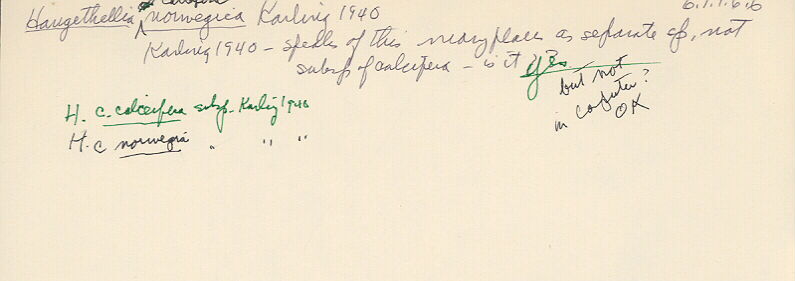 6.1.1.6.6
Hangethellia norvegica Karling 1940
Karling 1940 - speaks of this many places as separate sp, not
subsp of calceifera - is it yes
but not
in computer?
OK
H. c. calceifera subsp. Karling 1940
H. c norvegia " " "